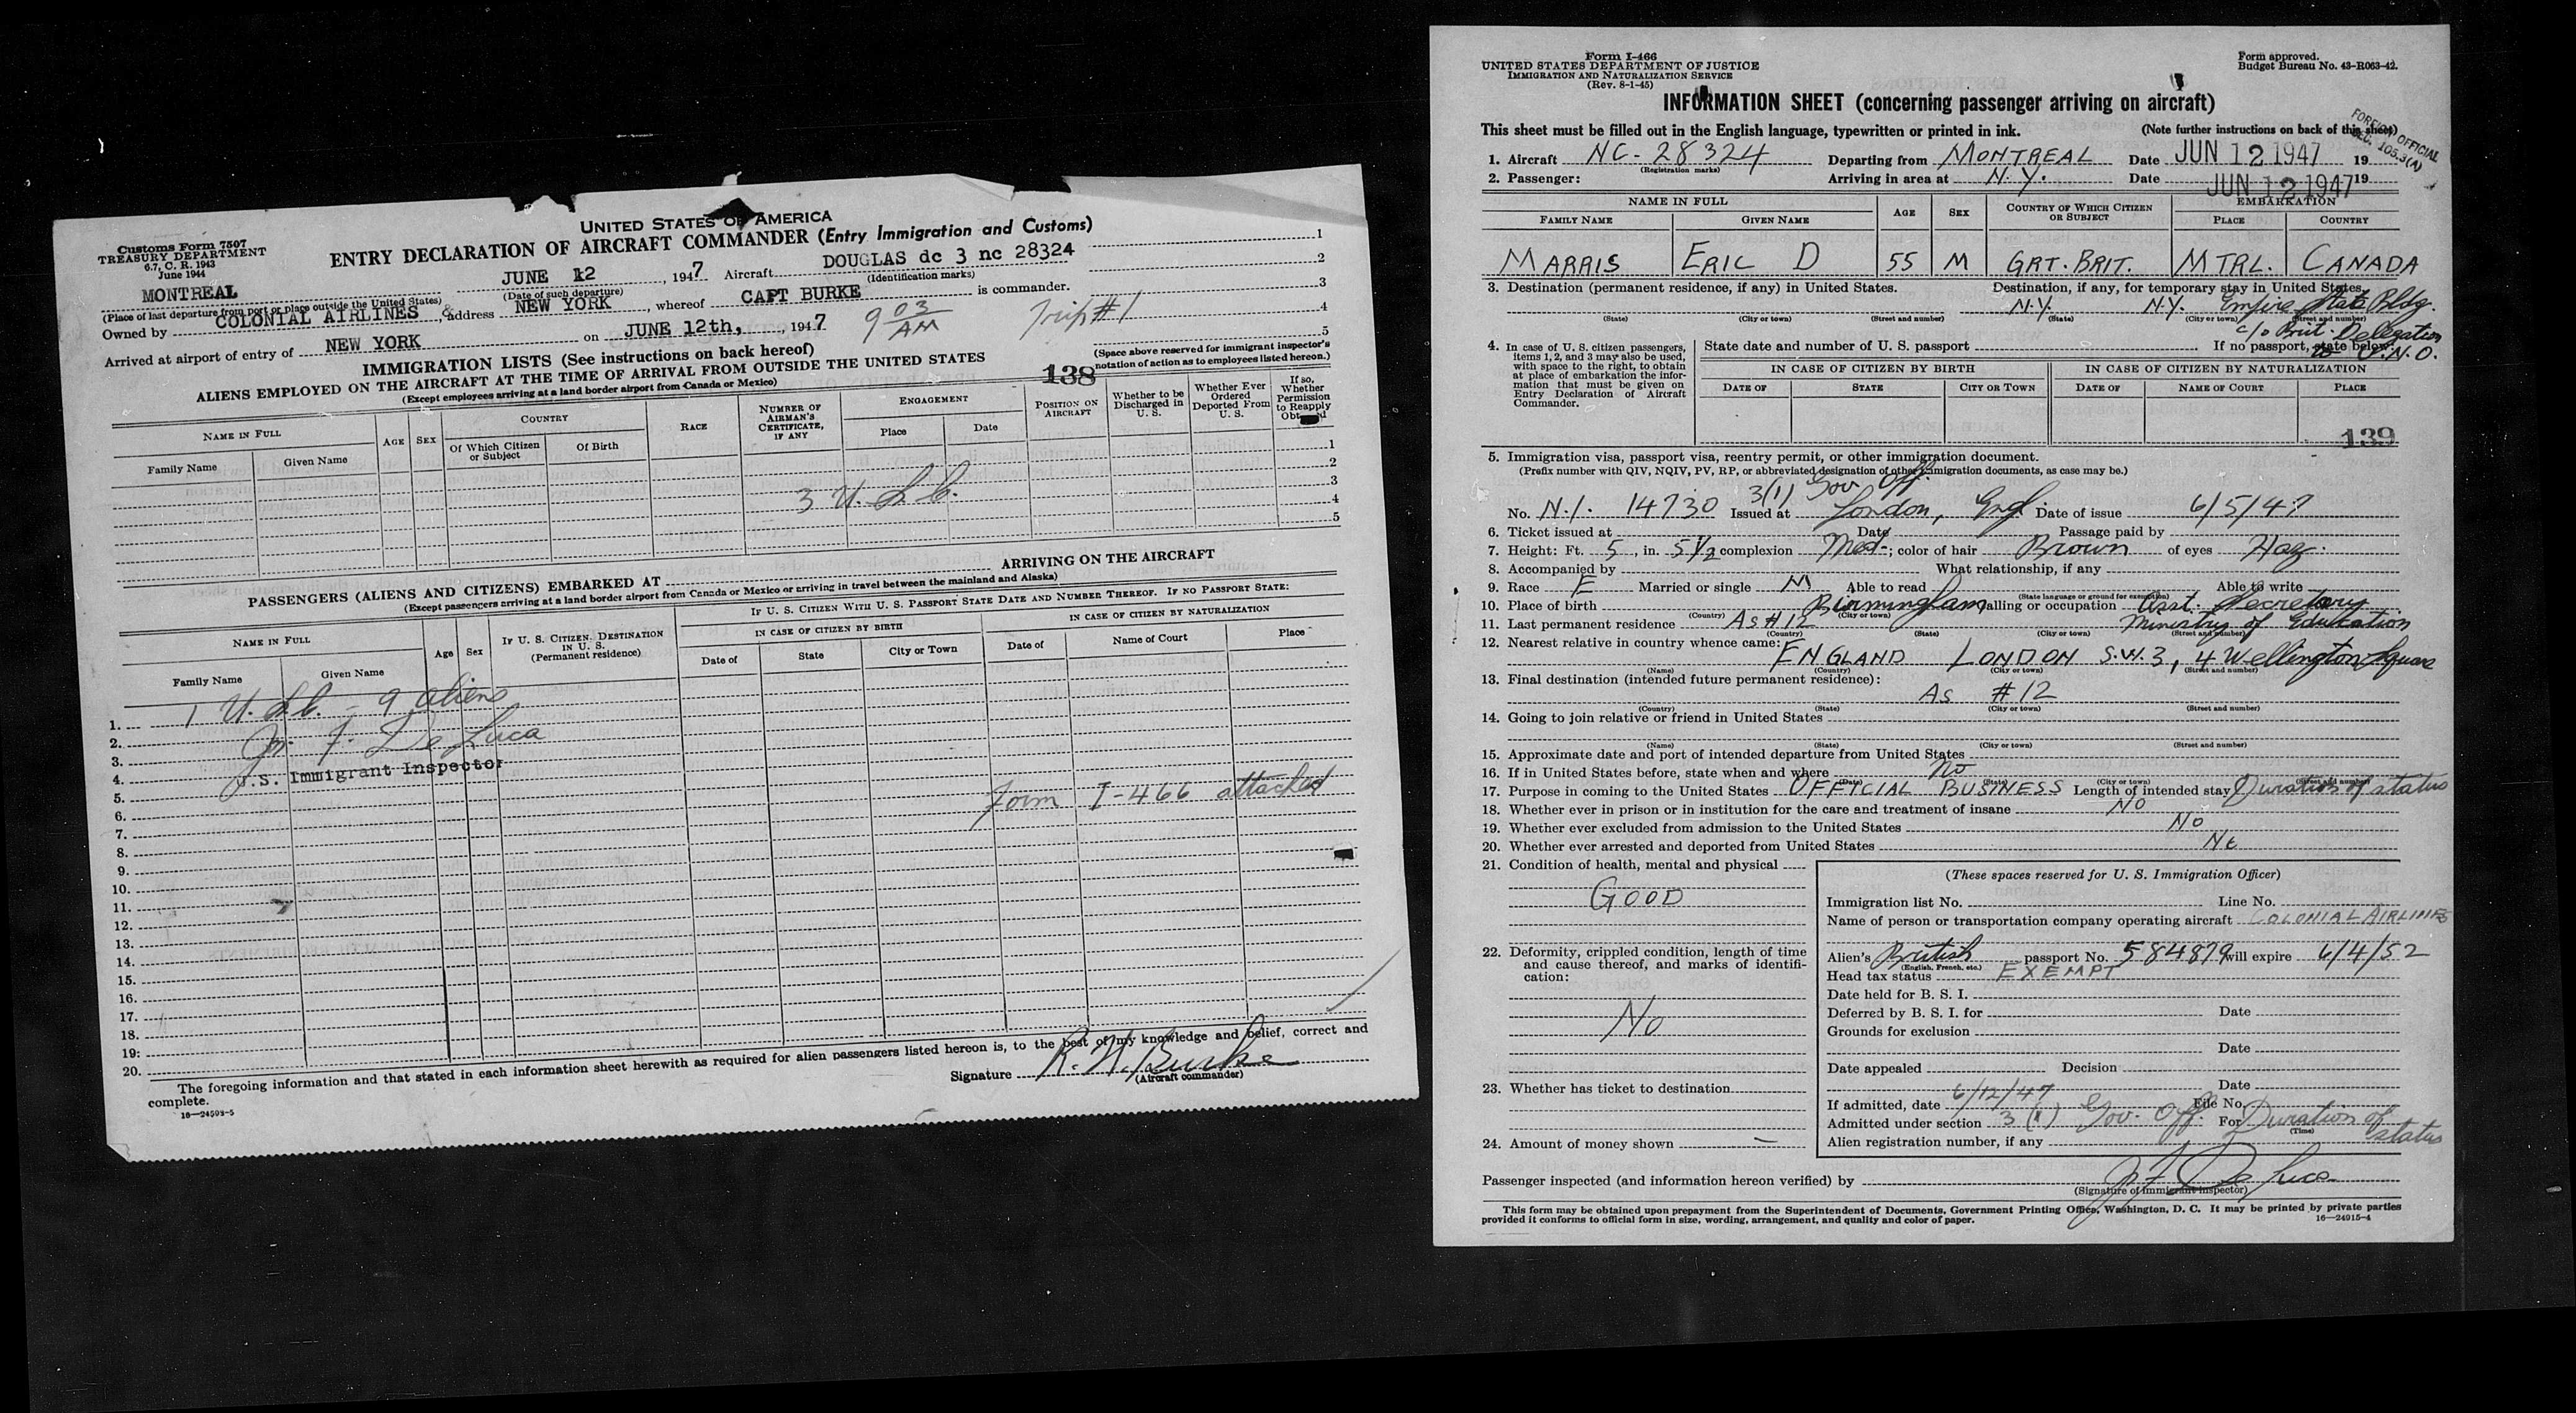 UNITED STATES OF AMERICA
ENTRY DECLARATION OF AIRCRAFT COMMANDER (Entry Immigration and Customs)
Customs Form 7507
TREASURY DEPARTMENT
6.7, C. R. 1943
June 1944
MONTREAL JUNE 12, 1947 Aircraft DOUGLAS dc 3 nc 28324
(Place of last departure from port or place outside the United States) (Date of such departure) (Identification marks)
Owned by COLONIAL AIRLINES, & address NEW YORK, whereof CAPT BURKE is commander.
Arrived at airport of entry of NEW YORK on JUNE 12th, 1947 9 03 AM Trip #1
1
2
3
4
5
(Space above reserved for immigrant inspector's notation of action as to employees listed hereon.)
IMMIGRATION LISTS (See instructions on back hereof)
ALIENS EMPLOYED ON THE AIRCRAFT AT THE TIME OF ARRIVAL FROM OUTSIDE THE UNITED STATES 138
(Except employees arriving at a land border airport from Canada or Mexico)
NAME IN FULL AGE SEX COUNTRY RACE NUMBER OF AIRMAN'S CERTIFICATE, IF ANY ENGAGEMENT POSITION ON AIRCRAFT Whether to be Discharged in U. S. Whether Ever Ordered Deported From U. S. If so, Whether Permission to Reapply Obtained
Family Name Given Name Of Which Citizen or Subject Of Birth Place Date
1
2
3
4
5
3 U. S. C.
PASSENGERS (ALIENS AND CITIZENS) EMBARKED AT ARRIVING ON THE AIRCRAFT
(Except passengers arriving at a land border airport from Canada or Mexico or arriving in travel between the mainland and Alaska)
NAME IN FULL Age Sex IF U. S. CITIZEN, DESTINATION IN U. S. (Permanent residence) IF U. S. CITIZEN WITH U. S. PASSPORT STATE DATE AND NUMBER THEREOF. IF NO PASSPORT STATE:
IN CASE OF CITIZEN BY BIRTH IN CASE OF CITIZEN BY NATURALIZATION
Family Name Given Name Date of State City or Town Date of Name of Court Place
1. 1 U. S. C. - 9 aliens
2. Jos. F. De Luca
3.
4. U.S. Immigrant Inspector
5. Form I-466 attached
6.
7.
8.
9.
10.
11.
12.
13.
14.
15.
16.
17.
18.
19.
20.
The foregoing information and that stated in each information sheet herewith as required for alien passengers listed hereon is, to the best of my knowledge and belief, correct and
complete.
Signature R. W. Burke
(Aircraft commander)
16—24598-5
Form I-466
UNITED STATES DEPARTMENT OF JUSTICE
IMMIGRATION AND NATURALIZATION SERVICE
(Rev. 8-1-45)
Form approved.
Budget Bureau No. 43-R063-42.
INFORMATION SHEET (concerning passenger arriving on aircraft)
This sheet must be filled out in the English language, typewritten or printed in ink. (Note further instructions on back of this sheet)
FOREIGN OFFICIAL
SEC. 105.3(A)
1. Aircraft NC-28324 Departing from MONTREAL Date JUN 12 1947 19
(Registration marks)
2. Passenger: Arriving in area at N.Y. Date JUN 12 1947 19
NAME IN FULL AGE SEX COUNTRY OF WHICH CITIZEN OR SUBJECT EMBARKATION
FAMILY NAME GIVEN NAME PLACE COUNTRY
MARRIS ERIC D 55 M GRT. BRIT. MTRL. CANADA
3. Destination (permanent residence, if any) in United States. Destination, if any, for temporary stay in United States.
N.Y. N.Y. Empire State Bldg.
(State) (City or town) (Street and number) (State) (City or town) (Street and number)
c/o Brit. Delegation
to U.N.O.
4. In case of U. S. citizen passengers, items 1, 2, and 3 may also be used, with space to the right, to obtain at place of embarkation the information that must be given on Entry Declaration of Aircraft Commander.
State date and number of U. S. passport If no passport, state below:
IN CASE OF CITIZEN BY BIRTH IN CASE OF CITIZEN BY NATURALIZATION
DATE OF STATE CITY OR TOWN DATE OF NAME OF COURT PLACE
139
5. Immigration visa, passport visa, reentry permit, or other immigration document.
(Prefix number with QIV, NQIV, PV, RP, or abbreviated designation of other immigration documents, as case may be.)
3(1) Gov. Off.
No. N.I. 14730 Issued at London, Eng. Date of issue 6/5/47
6. Ticket issued at Date Passage paid by
7. Height: Ft. 5, in. 5 1/2 complexion Med.; color of hair Brown of eyes Haz.
8. Accompanied by What relationship, if any
9. Race E Married or single M Able to read Able to write
(State language or ground for exemption)
10. Place of birth Birmingham Calling or occupation Asst. Secretary
(Country) (City or town)
11. Last permanent residence As #12 Ministry of Education
(Country) (State) (City or town) (Street and number)
12. Nearest relative in country whence came:
ENGLAND LONDON S.W.3, 4 Wellington Square
(Name) (Country) (City or town) (Street and number)
13. Final destination (intended future permanent residence):
As #12
(Country) (State) (City or town) (Street and number)
14. Going to join relative or friend in United States
(Name) (State) (City or town) (Street and number)
15. Approximate date and port of intended departure from United States
16. If in United States before, state when and where No
(Date) (State) (City or town) (Street and number)
17. Purpose in coming to the United States OFFICIAL BUSINESS Length of intended stay Duration of status
18. Whether ever in prison or in institution for the care and treatment of insane No
19. Whether ever excluded from admission to the United States No
20. Whether ever arrested and deported from United States No
21. Condition of health, mental and physical
GOOD
22. Deformity, crippled condition, length of time and cause thereof, and marks of identification:
No
23. Whether has ticket to destination
24. Amount of money shown —
(These spaces reserved for U. S. Immigration Officer)
Immigration list No. Line No.
Name of person or transportation company operating aircraft COLONIAL AIRLINES
Alien's British passport No. 584879 will expire 6/4/52
(English, French, etc.)
Head tax status EXEMPT
Date held for B. S. I.
Deferred by B. S. I. for Date
Grounds for exclusion
Date
Date appealed Decision
Date
If admitted, date 6/12/47 File No.
Admitted under section 3(1) Gov. Off. For Duration of status
(Time)
Alien registration number, if any
Passenger inspected (and information hereon verified) by J F De Luca
(Signature of immigrant inspector)
This form may be obtained upon prepayment from the Superintendent of Documents, Government Printing Office, Washington, D. C. It may be printed by private parties
provided it conforms to official form in size, wording, arrangement, and quality and color of paper. 16—24915-4